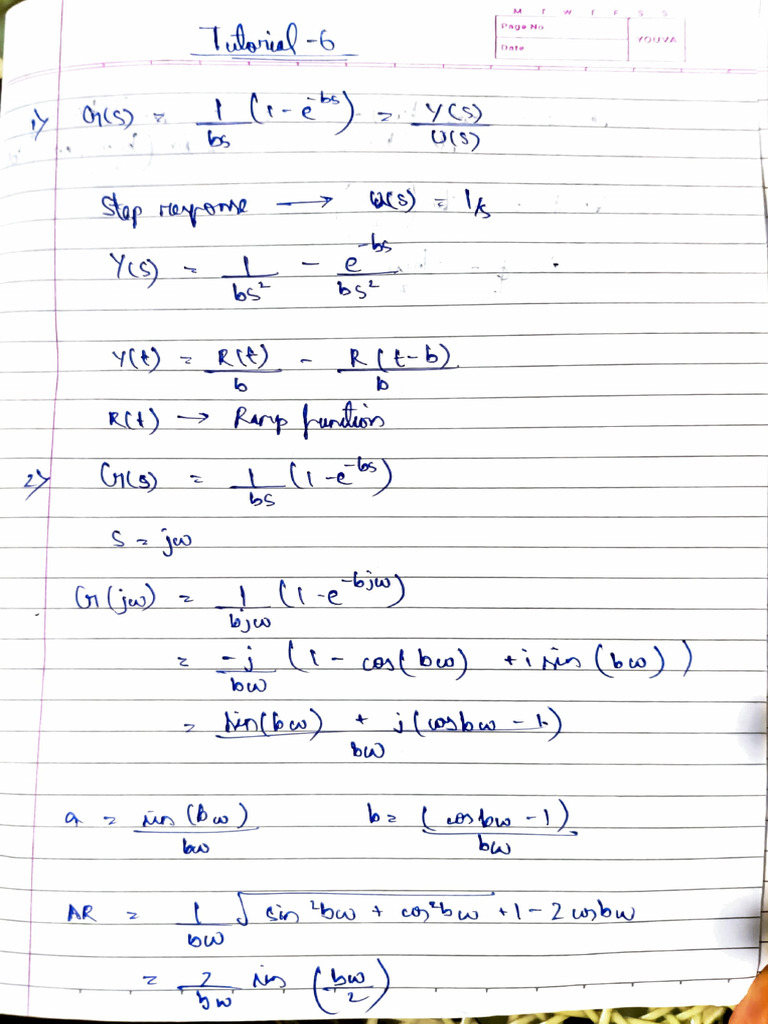 M T W T F S S
Page No
Date
YOUVA
Tutorial-6
1) G(s) = 1/bs (1-e^-bs) = Y(s)/U(s)
Step response → U(s) = 1/s
Y(s) = 1/bs² - e^-bs/bs²
Y(t) = R(t)/b - R(t-b)/b
R(t) → Ramp function
2) G(s) = 1/bs (1-e^-bs)
s = jω
G(jω) = 1/bjω (1-e^-bjω)
= -j/bω (1 - cos(bω) + i sin(bω))
= sin(bω) + j(cosbω - 1)/bω
a = sin(bω)/bω b = (cosbω - 1)/bω
AR = 1/bω √sin²bω + cos²bω +1-2cosbω
= 2/bω sin (bω/2)